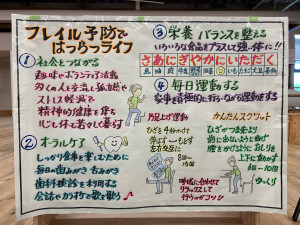 フレイル予防で
はつらつライフ
① 社会とつながる
趣味やボランティア活動
多くの人と交流し孤独や
ストレス軽減で
精神的健康を保ち
心も体も若々しく暮らす
② オーラルケア
しっかり食事を楽しむために
毎日の歯みがき 舌みがき
歯科検診を利用する
会話やカラオケで歌を歌う
③ 栄養バランスを整える
いろいろな食品をプラスして強い体に!!
さあにぎやかにいただく
魚 油 肉 牛乳 野菜 海藻 いも たまご 大豆 果物
④ 毎日運動する
家事を積極的に行いながら運動をする
ひざを4秒かけ
伸ばす
左右交互に
8回〜
かんたんスクワット
ひざがつま先より
前に出ないように曲げ
上下に動かす
6回〜10回
ゆっくり
呼吸に合わせて
リラックスして
行うのがコツ!!